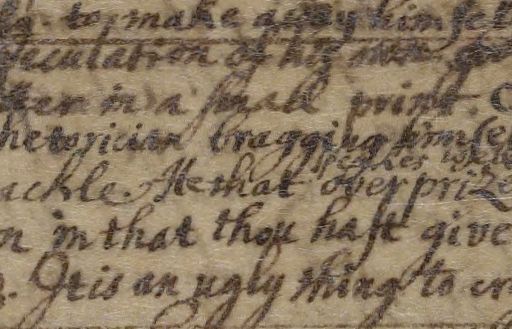 to make away himsel
culation of his own
ten in a small print. C
hetorician bragging himsel
speakes
uckle. He that overprize
n in that thou hast give
. It is an ugly thing to